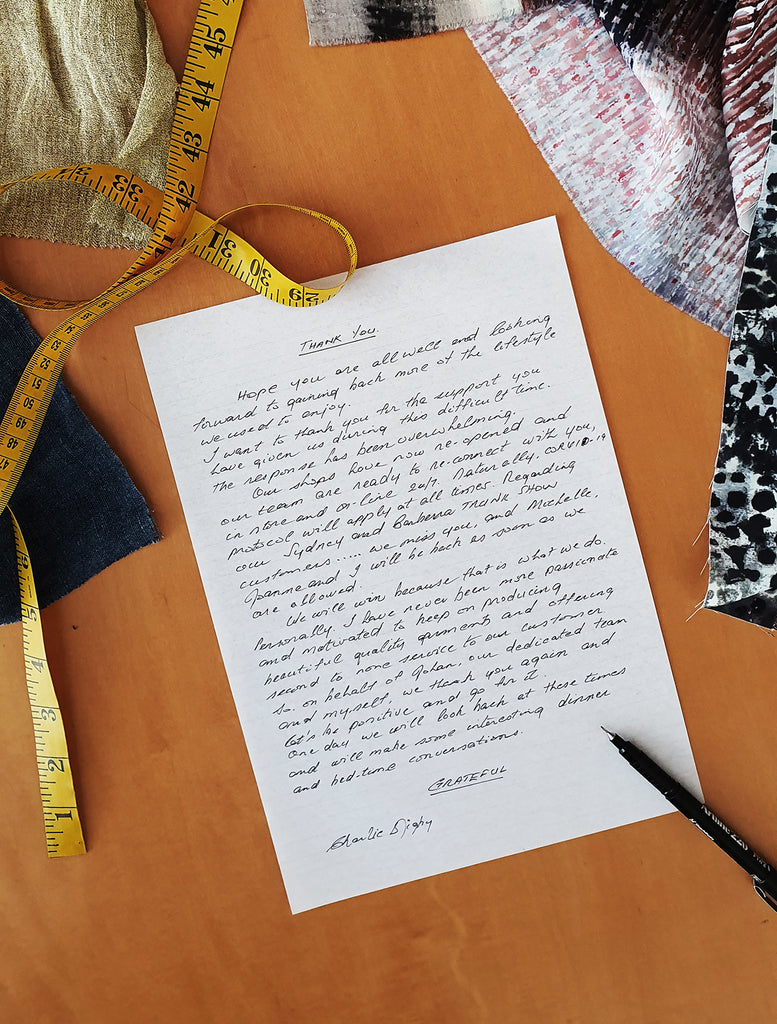 THANK YOU.
Hope you are all well and looking
forward to gaining back more of the lifestyle
we used to enjoy.
I want to thank you for the support you
have given us during this difficult time.
the response has been overwhelming.
Our shops have now re-opened and
our team are ready to re-connect with you,
in store and on-line 24/7. Naturally, COVID-19
protocol will apply at all times. Regarding
our Sydney and Canberra TRUNK SHOW
customers..... we miss you, and Michelle,
Joanne and I will be back as soon as we
are allowed.
We will win because that is what we do.
Personally, I have never been more passionate
and motivated to keep on producing
beautiful quality garments and offering
second to none service to our customer.
So, on behalf of Johan, our dedicated team
and myself, we thank you again and
let's be positive and go for it.
One day we will look back at these times
and will make some interesting dinner
and bed-time conversations.
GRATEFUL
Charlie Digby
45
44
43
42
41
33
31
30
29
52
51
50
49
48
47
5
4
3
2
1
Artline 220